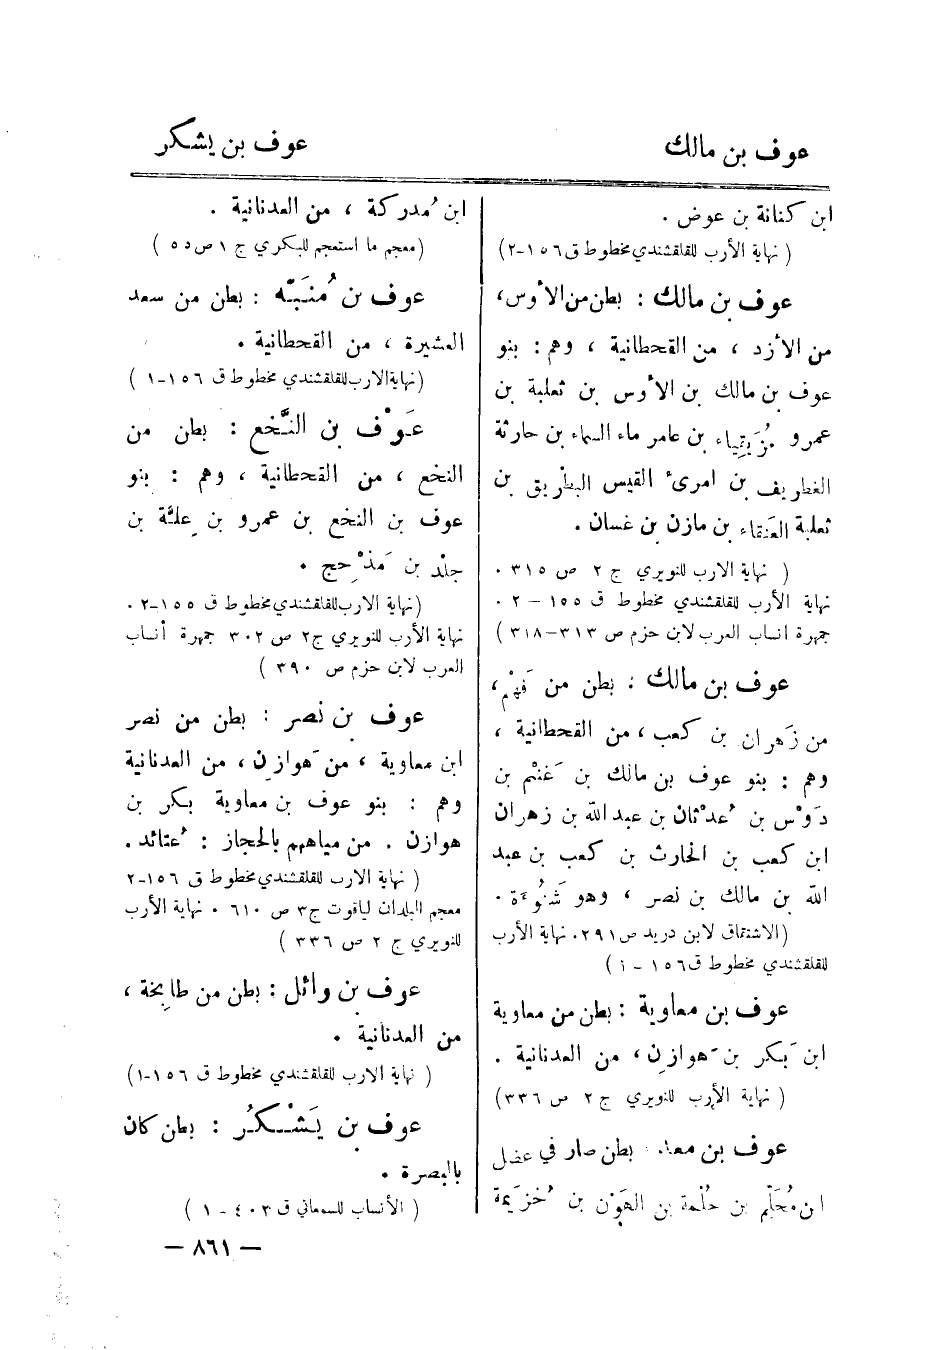 عوف بن مالك
عوف بن يشكر
ابن كنانة بن عوض .
( نهاية الأرب للقلقشندي مخطوط ق ١٥٦-٢)
عوف بن مالك : بطن من الأوس،
من الأزد ، من القحطانية ، وهم : بنو
عوف بن مالك بن الأوس بن ثعلبة بن
عمرو مُزَيقياء بن عامر ماء السماء بن حارثة
الغطريف بن امرىء القيس البطْريق بن
ثعلبة العَنقاء بن مازن بن غسان .
( نهاية الارب للنويري ج ٢ ص ٣١٥ .
نهاية الأرب للقلقشندي مخطوط ق ١٥٥ – ٢ .
جمهرة انساب العرب لابن حزم ص ٣١٣–٣١٨ )
عوف بن مالك : بطن من فَهْم،
من زَهران بن كعب ، من القحطانية ،
وهم : بنو عوف بن مالك بن غَنْم بن
دَوْس بن عُدْثان بن عبد الله بن زهران
ابن كعب بن الحارث بن كعب بن عبد
الله بن مالك بن نصر ، وهو شَنُوءَة .
(الاشتقاق لابن دريد ص ٢٩١. نهاية الأرب
للقلقشندي مخطوط ق ١٥٦ – ١ )
عوف بن معاوية : بطن من معاوية
ابن بَكر بن هَوازِن ، من العدنانية .
( نهاية الأرب للنويري ج ٢ ص ٣٣٦)
عوف بن معد. بطن صار في عضل
ابن مُحَلِّم بن حلْمة بن الهَوْن بن خُزيمة
ابن مُدركة ، من العدنانية .
(معجم ما استعجم للبكري ج ١ ص ٥٥ )
عوف بن مُنَبّه : بطن من سعد
العشيرة ، من القحطانية .
(نهاية الارب للقلقشندي مخطوط ق ١٥٦-١ )
عَوْف بن النَّخع : بطن من
النخع ، من القحطانية ، وهم : بنو
عوف بن النخع بن عمرو بن علة بن
جلْد بن مَذْحِج .
(نهاية الارب للقلقشندي مخطوط ق ١٥٥–٢ .
نهاية الأرب للنويري ج٢ ص ٣٠٢ جمهرة أنساب
العرب لابن حزم ص ٣٩٠ )
عوف بن نصر : بطن من نصر
ابن معاوية ، من هَوازِن ، من العدنانية
وهم : بنو عوف بن معاوية بكر بن
هوازن . من مياههم بالحجاز : عُتائد .
( نهاية الارب للقلقشندي مخطوط ق ١٥٦-٢
معجم البلدان لياقوت ج٣ ص ٦١٠ . نهاية الأرب
للنويري ج ٢ ص ٣٣٦ )
عوف بن وائل : بطن من طابِخة ،
من العدنانية .
( نهاية الارب للقلقشندي مخطوط ق ١٥٦-١)
عوف بن يَشْكُر : بطن كان
بالبصرة .
( الأنساب للسمعاني ق ٤٠٣ – ١ )
— ٨٦١ —